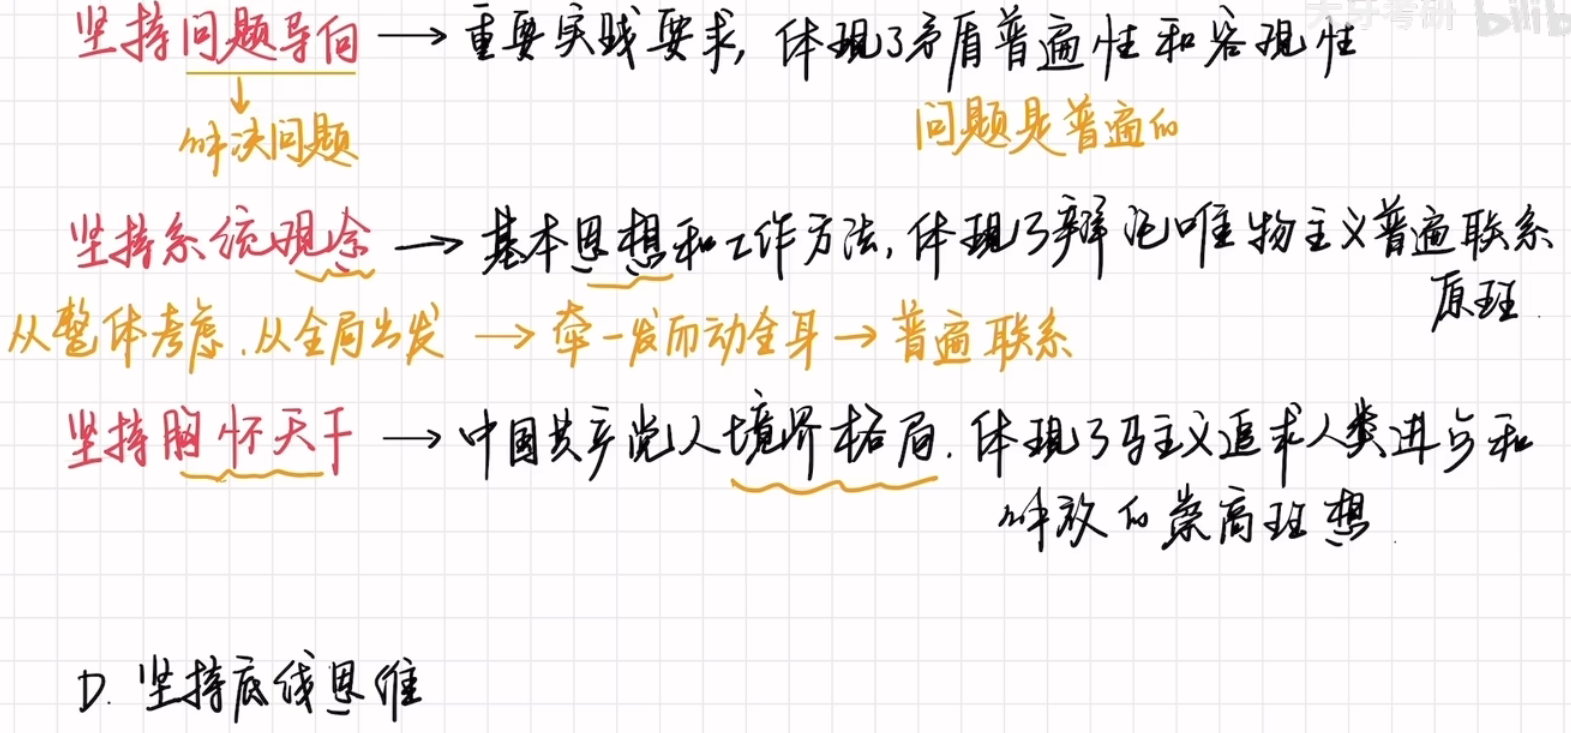 大牙考研 bilib
坚持问题导向 → 重要实践要求, 体现了矛盾普遍性和客观性
解决问题
问题是普遍的
坚持系统观念 → 基本思想和工作方法, 体现了辩证唯物主义普遍联系
原理.
从整体考虑.从全局出发 → 牵一发而动全身 → 普遍联系
坚持胸怀天下 → 中国共产党人境界格局. 体现了马主义追求人类进步和
解放的崇高理想.
D. 坚持底线思维